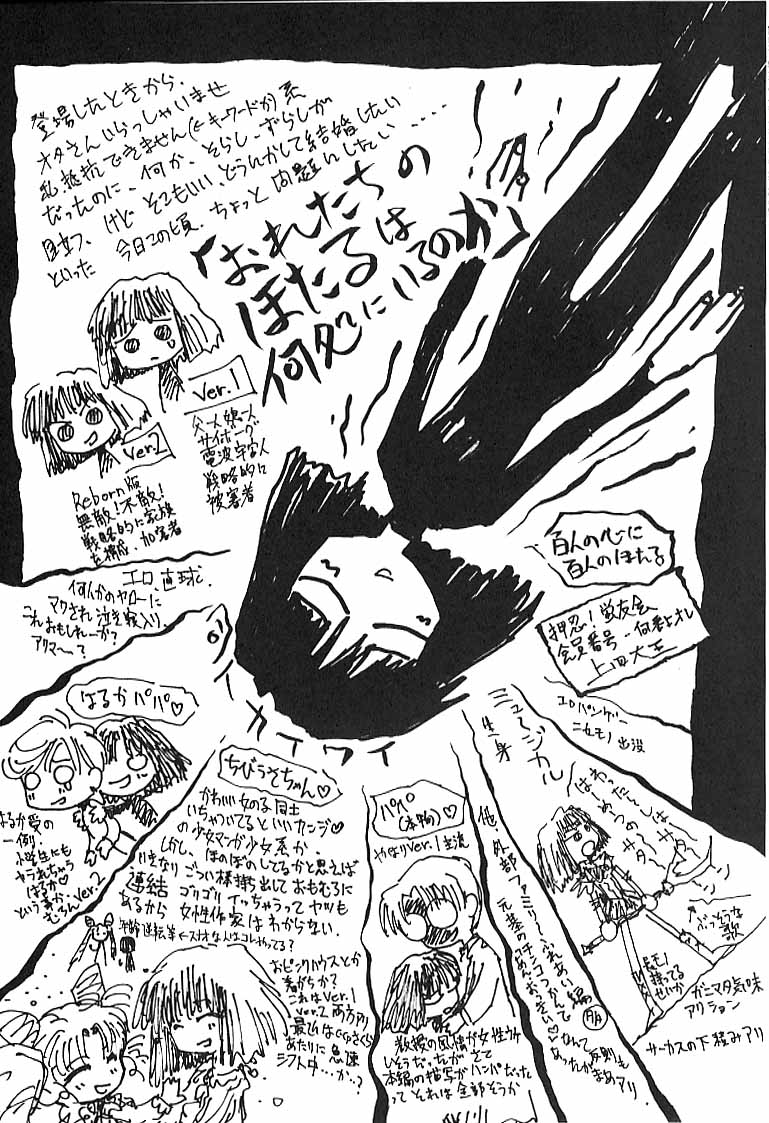 登場したときから、
オタさんいらっしゃいませ
(←キーワードか)系
私 抵抗できません
だったのに、何か、そらし、ずらしが
目立つ、けど そこもいい、どうにかして結婚したい
といった 今日この頃、ちょっと 問題にしたい……
「おれたちの
ほたるは
何処にいるのか」
Ver.1
サイボーグ
電波宇宙人
戦略的に
被害者
Ver.2
Reborn版
無敵!不敵!
戦略的に家族
を構成、加害者
百人の心に
百人のほたる
押忍!蛍友会
会員番号一何番はオレ
エロパンゲー
ニセモノ 出没
エロ、直球、
何人かのヤローに
マワされ 泣き寝入り、
これおもしれーか?
アクマ〜?
イ カイワイ
はるかパパ♡
はるか愛の
一例、
小学生にも
ヤラれちゃう
はるか♡
という事か、
むろんVer.2
ちびうさちゃん♡
かわいい女の子同士
いちゃいてるといいカンジ♡
の少女マンガ少女系か、
しかし、ほのぼのしてるかと思えば
いきなりごつい様持ち出しておもむろに
連結 ゴリゴリ イッちゃうって ヤツも
あるから 女性作家はわからない、
年齢逆転等←スオオな人はコレやってる?
おピンクハウスとか
着がちか?
これはVer.1
Ver.2両方アリ
最近はCCさくら
あたりに急速
シフト中…か…?
パペ
(本物)♡
やはりVer.1主流
教授の風情が女性ウケ
しそうだったが、さて
本編の描写がハンパだった
って それは全部そうか
他、外部ファミリーふれあい編
元基のチンコつかって
なんて
反則も
あったがまあアリ
ミュージカル
生身
はわっだーんしぇき
あっつの
サター
サター
ン
ぶっそうな
歌
長モノ
持ってる
せいか
ガニマタ気味
アクション
サーカスの下積みアリ